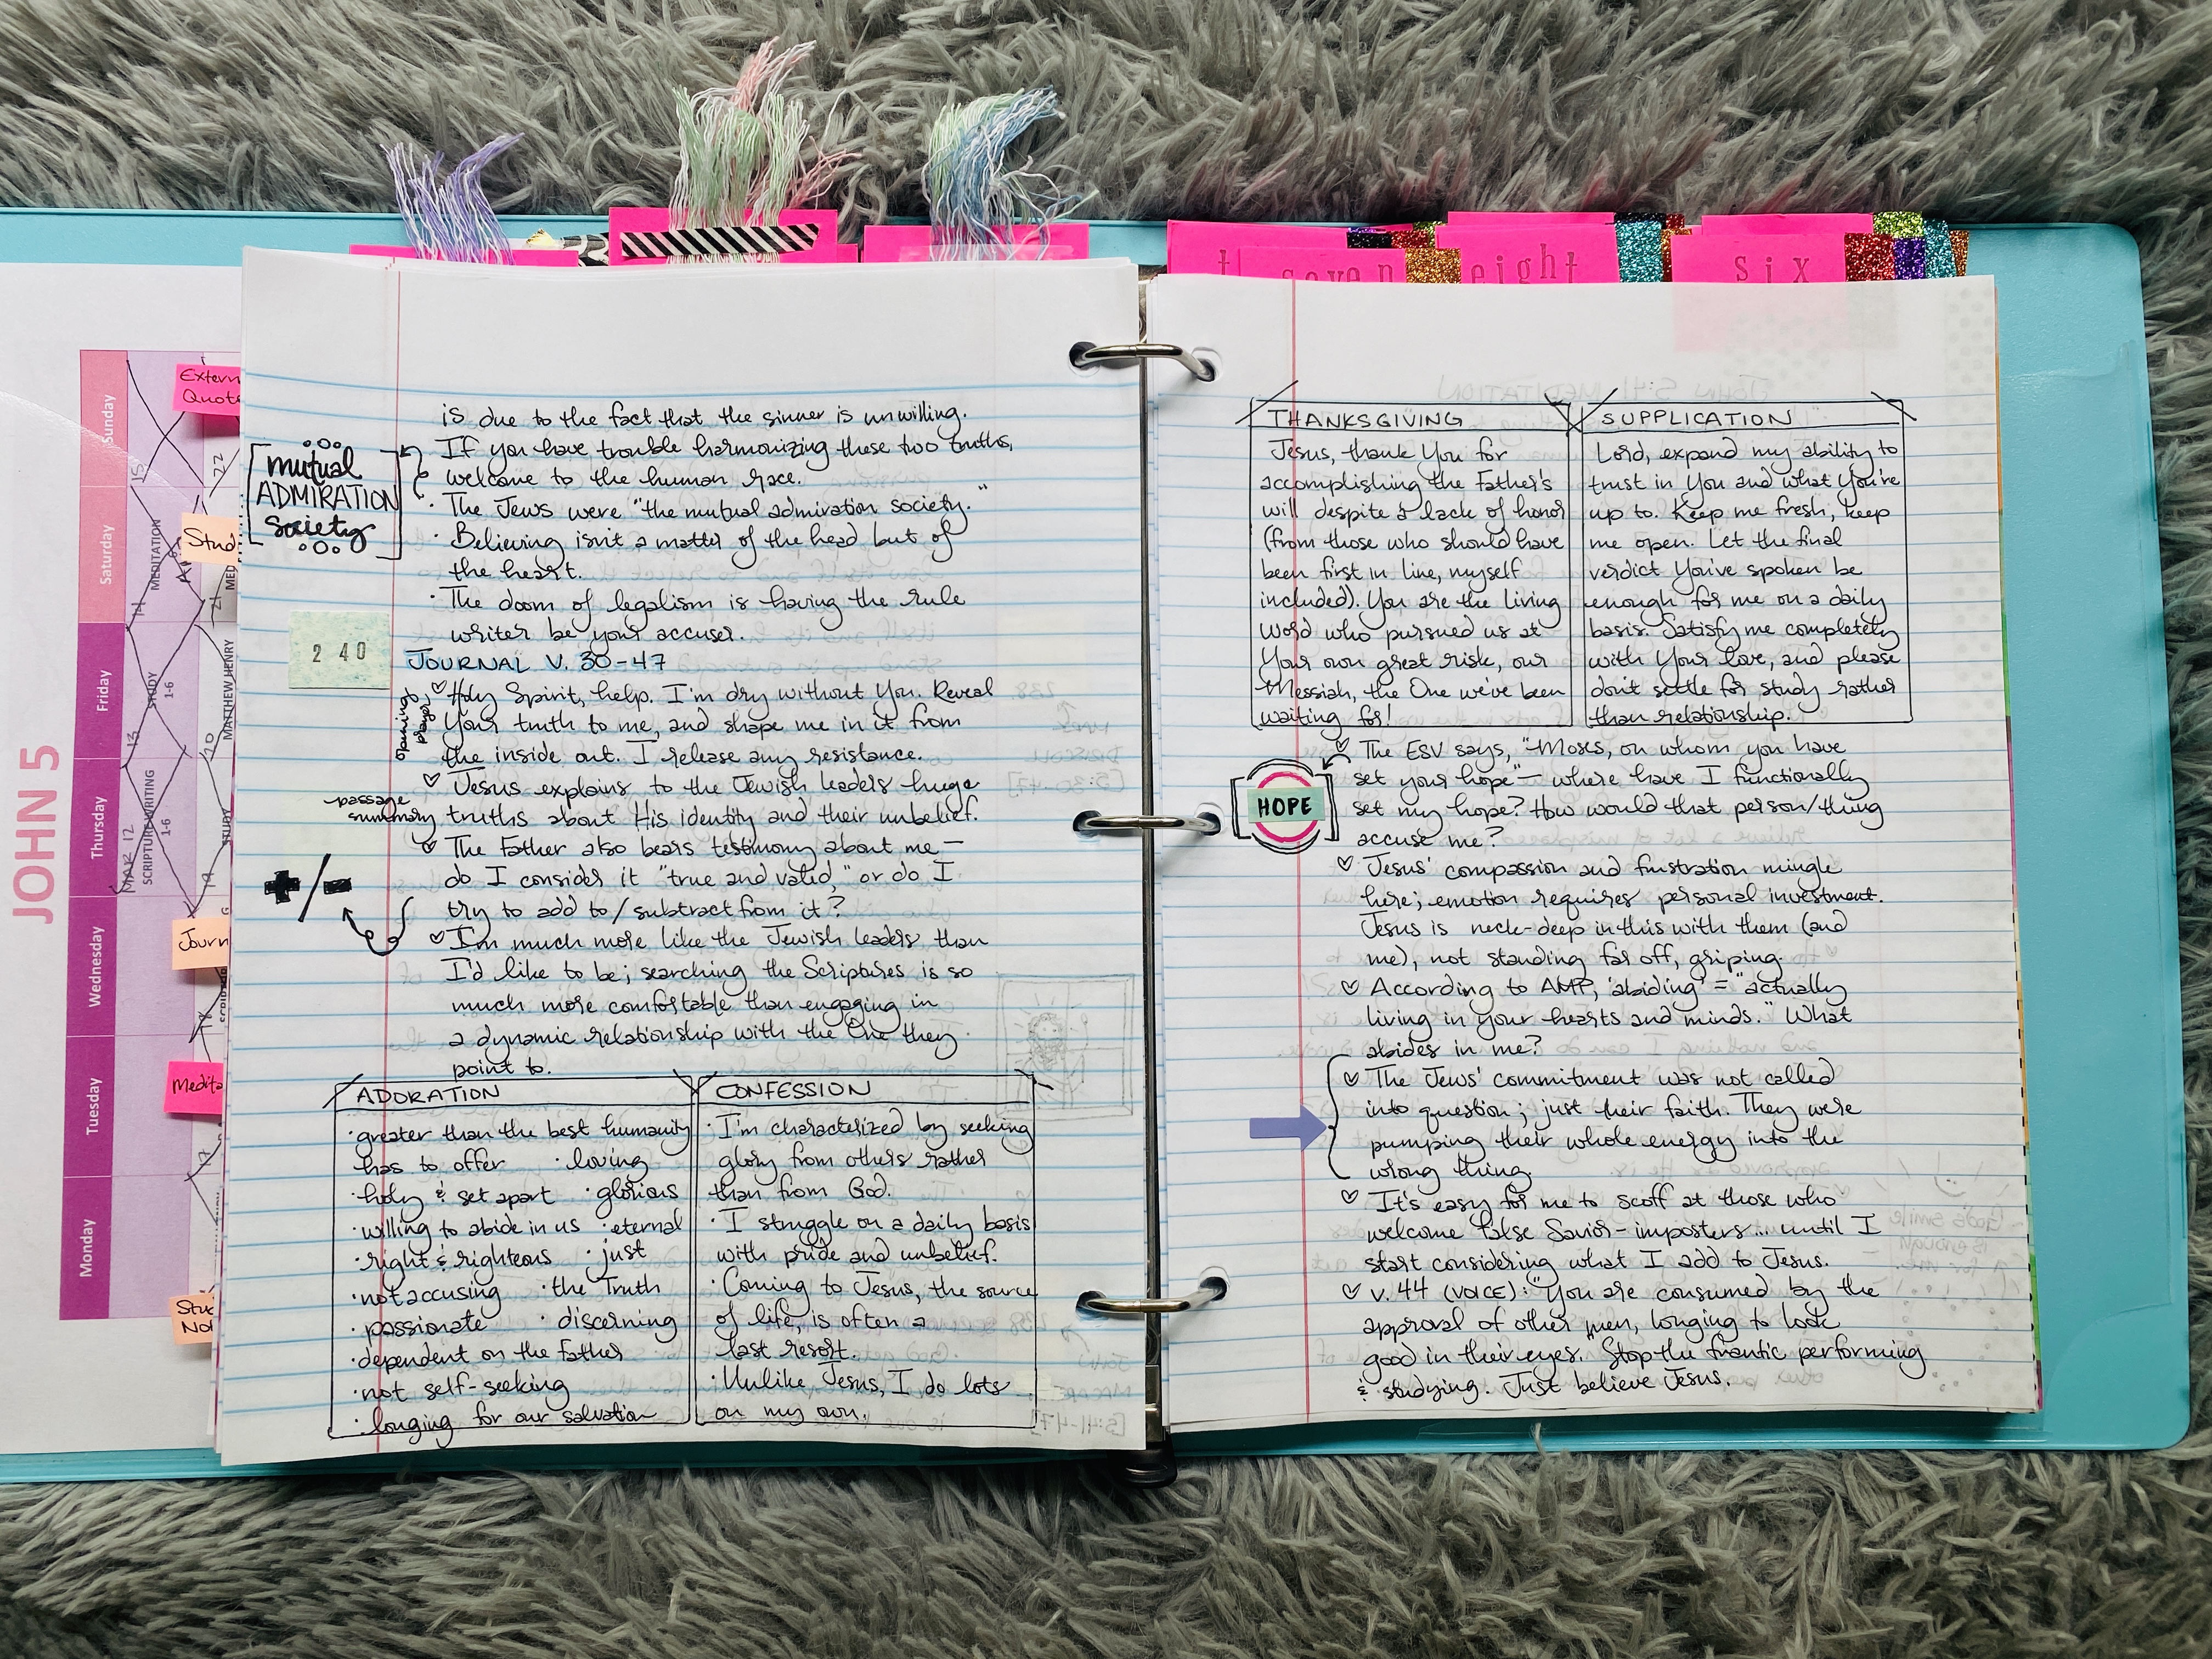 JOHN 5
Sunday
Saturday
Friday
Thursday
Wednesday
Tuesday
Monday
15
22
MEDITATION
14
21
STUDY
1-6
MATTHEW HENRY
13
20
MAR 12
SCRIPTURE WRITING
1-6
STUDY
19
17
Extern
Quote
Stud
Journ
Medita
Stud
No
is due to the fact that the sinner is unwilling.
If you have trouble harmonizing these two truths,
welcome to the human race.
mutual
ADMIRATION
society
· The Jews were "the mutual admiration society."
· Believing isn't a matter of the head but of
the heart.
· The doom of legalism is having the rule
writer be your accuser.
2 40
JOURNAL V. 30-47
opening
prayer
♡ Holy Spirit, help. I'm dry without You. Reveal
Your truth to me, and shape me in it from
the inside out. I release any resistance.
passage
summary
♡ Jesus explains to the Jewish leaders huge
truths about His identity and their unbelief.
♡ The Father also bears testimony about me —
do I consider it "true and valid," or do I
try to add to/subtract from it?
+/-
♡ I'm much more like the Jewish leaders than
I'd like to be; searching the Scriptures is so
much more comfortable than engaging in
a dynamic relationship with the One they
point to.
ADORATION
· greater than the best humanity
has to offer · loving
· holy & set apart · glorious
· willing to abide in us · eternal
· right & righteous · just
· not accusing · the Truth
· passionate · discerning
· dependent on the Father
· not self-seeking
· longing for our salvation
CONFESSION
· I'm characterized by seeking
glory from others rather
than from God.
· I struggle on a daily basis
with pride and unbelief.
· Coming to Jesus, the source
of life, is often a
last resort.
· Unlike Jesus, I do lots
on my own.
seven
eight
six
THANKSGIVING
Jesus, thank You for
accomplishing the Father's
will despite a lack of honor
(from those who should have
been first in line, myself
included). You are the Living
Word who pursued us at
Your own great risk, our
Messiah, the One we've been
waiting for!
SUPPLICATION
Lord, expand my ability to
trust in You and what You're
up to. Keep me fresh, keep
me open. Let the final
verdict You've spoken be
enough for me on a daily
basis. Satisfy me completely
with Your love, and please
don't settle for study rather
than relationship.
HOPE
♡ The ESV says, "Moses, on whom you have
set your hope" — where have I functionally
set my hope? How would that person/thing
accuse me?
♡ Jesus' compassion and frustration mingle
here; emotion requires personal investment.
Jesus is neck-deep in this with them (and
me), not standing far off, griping.
♡ According to AMP, 'abiding' = "actually
living in your hearts and minds." What
abides in me?
♡ The Jews' commitment was not called
into question; just their faith. They were
pumping their whole energy into the
wrong thing.
♡ It's easy for me to scoff at those who
welcome false Savior-imposters... until I
start considering what I add to Jesus.
♡ v. 44 (VOICE): "You are consumed by the
approval of other men, longing to look
good in their eyes. Stop the frantic performing
& studying. Just believe Jesus.